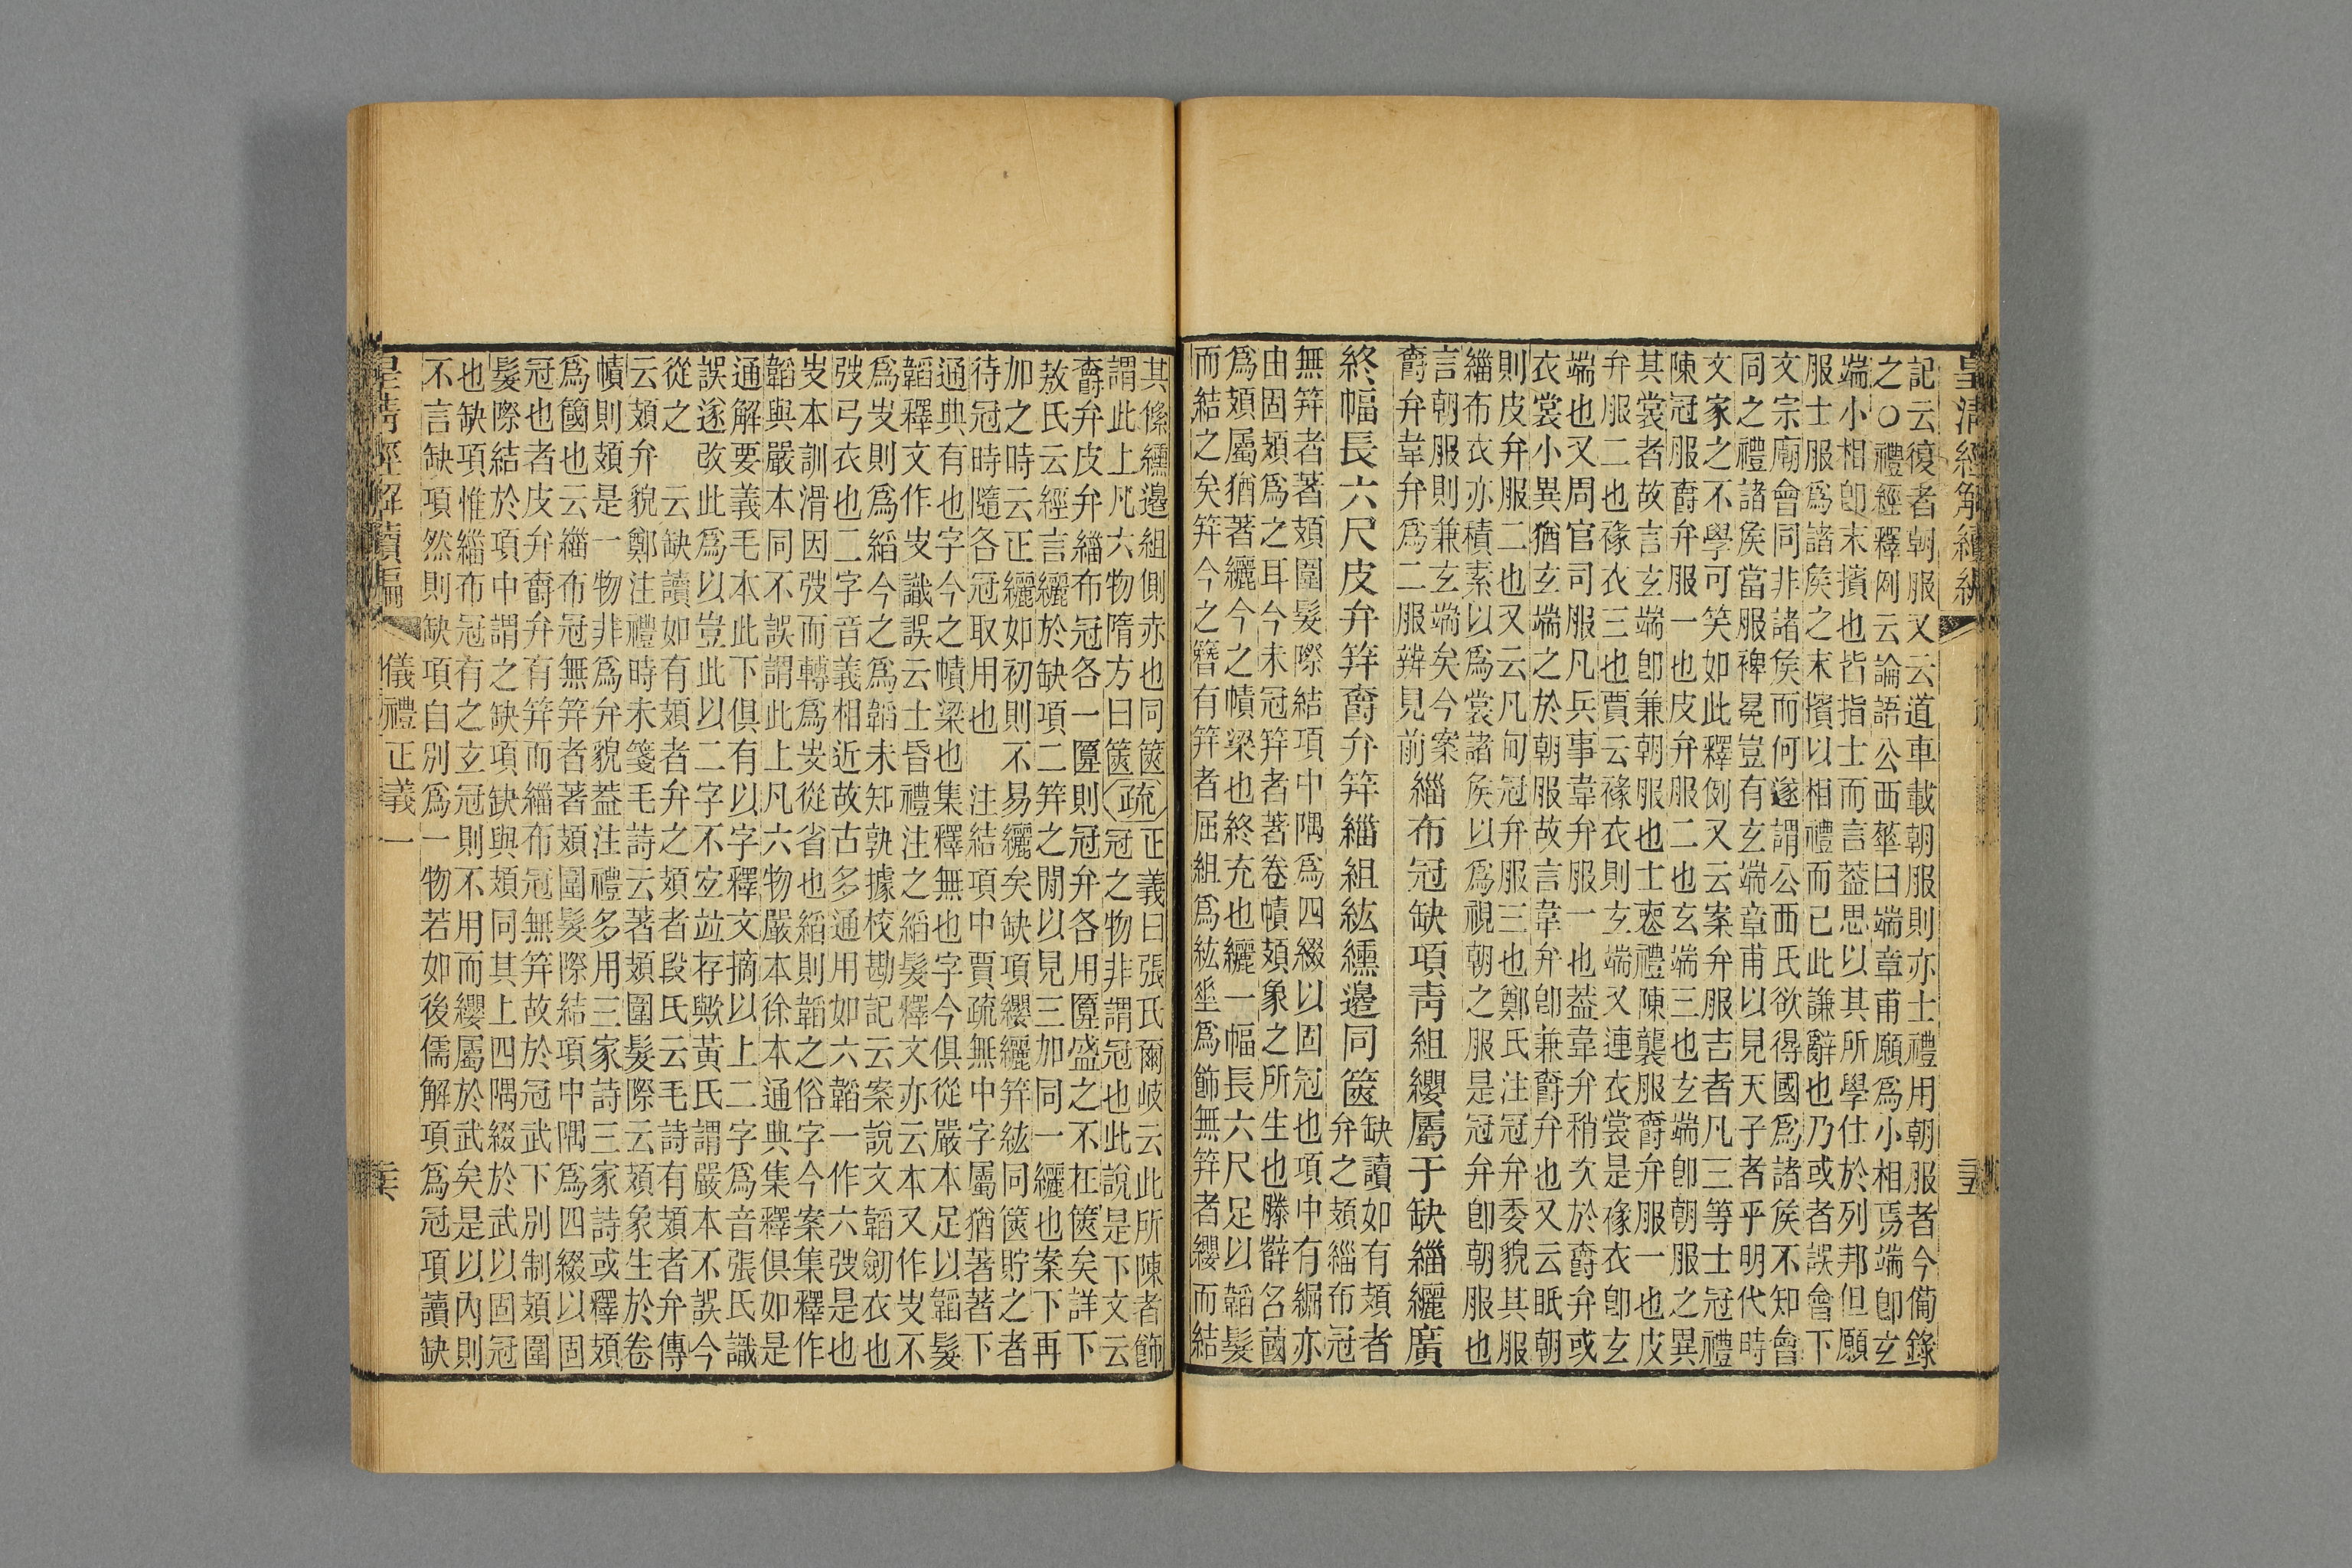 皇清經解續編
記云復者朝服又云道車載朝服則亦士禮用朝服者今備錄
之○禮經釋例云論語公西華曰端章甫願為小相焉端卽玄
端小相卽末擯也皆指士而言葢思以其所學仕於列邦但願
服士服爲諸矦之末擯以相禮而已此謙辭也乃或者誤會下
文宗廟會同非諸矦而何遂謂公西氏欲得國爲諸矦不知會
同之禮諸矦當服裨冕豈有玄端章甫以見天子者乎明代時
文家之不學可笑如此釋例又云案弁服吉者凡三等士冠禮
陳冠服爵弁服一也皮弁服二也玄端三也玄端卽朝服之異
其裳者故言玄端卽兼朝服也士喪禮陳襲服爵弁服一也皮
弁服二也褖衣三也賈云褖衣則玄端又連衣裳是褖衣卽玄
端也又周官司服凡兵事韋弁服一也葢韋弁稍次於爵弁或
衣裳小異猶玄端之於朝服故言韋弁卽兼爵弁也又云眂朝
則皮弁服二也又云凡甸冠弁服三也鄭氏注冠弁委貌其服
緇布衣亦積素以爲裳諸矦以爲視朝之服是冠弁卽朝服也
言朝服則兼玄端矣今案
爵弁韋弁爲二服辨見前
緇布冠缺項靑組纓屬于缺緇纚廣
終幅長六尺皮弁筓爵弁筓緇組紘纁邊同篋
缺讀如有頍者
弁之頍緇布冠
無筓者著頍圍髮際結項中隅爲四綴以固冠也項中有𦆑亦
由固頍爲之耳今未冠筓者著卷幘頍象之所生也滕薛名蔮
爲頍屬猶著纚今之幘梁也終充也纚一幅長六尺足以韜髮
而結之矣筓今之簪有筓者屈組爲紘垂爲飾無筓者纓而結
其絛纁邊組側亦也同篋疏正義曰張氏爾岐云此所陳者飾
謂此上凡六物隋方曰篋冠之物非謂冠也此說是下文云
爵弁皮弁緇布冠各一匴則冠弁各用匴盛之不在篋矣詳下
敖氏云經言纚於缺項二筓之閒以見三加同一纚也案下再
加之時云正纚如初則不易纚矣缺項纓纚筓紘同篋貯之者
待冠時隨各冠取用也注結項中賈疏無中字屬猶著著下
通典有也字今之幘梁也集釋無也字今俱從嚴本足以韜髮
韜釋文作㚻識誤云士昏禮注之縚髮釋文亦云本又作㚻不
爲㚻則爲縚今之爲韜未知孰據校勘記云案說文韜劒衣也
弢弓衣也二字音義相近故古多通用如六韜一作六弢是也
㚻本訓滑因弢而轉爲㚻從省也縚則韜之俗字今案集釋作
韜與嚴本同不誤謂此上凡六物嚴本徐本通典集釋俱如是
通解要義毛本此下俱有以字釋文摘以上二字爲音張氏識
誤遂改此爲以豈此以二字不宐竝存歟黃氏謂嚴本不誤今
從之云缺讀如有頍者弁之頍者段氏云毛詩有頍者弁傳
云頍弁貌鄭注禮時未箋毛詩云著頍圍髮際云頍象生於卷
幘則頍是一物非爲弁貌葢注禮多用三家詩三家詩或釋頍
爲簂也云緇布冠無筓者著頍圍髮際結項中隅爲四綴以固
冠也者皮弁爵弁有筓而緇布冠無筓故於冠武下別制頍圍
髮際結於項中謂之缺項缺與頍同其上四隅綴於武以固冠
也缺項惟緇布冠有之玄冠則不用而纓屬於武矣是以內則
不言缺項然則缺項自別爲一物若如後儒解項爲冠項讀缺
皇清經解續編 儀禮正義一